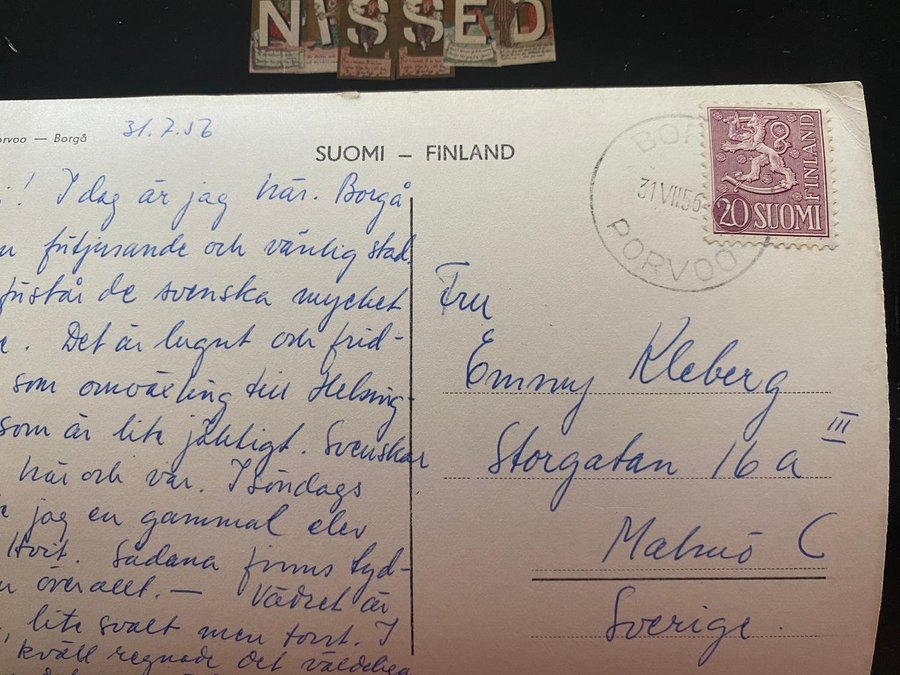 NISSED
orvoo — Borgå
31.7.56
SUOMI – FINLAND
! I dag är jag här. Borgå
förtjusande och vänlig stad.
förstår de svenska mycket
. Det är lugnt och frid-
som omväxling till Helsing-
som är lite jäktigt. Svenskar
här och var. I söndags
jag en gammal elev
Hvit. Sådana finns tyd-
överallt. — Vädret är
, lite svalt men torrt. I
kväll regnade det väldeliga
BOR
31 VII.56
PORVOO
20 SUOMI
FINLAND
Fru
Emmy Kleberg
Storgatan 16 a III
Malmö C
Sverige.